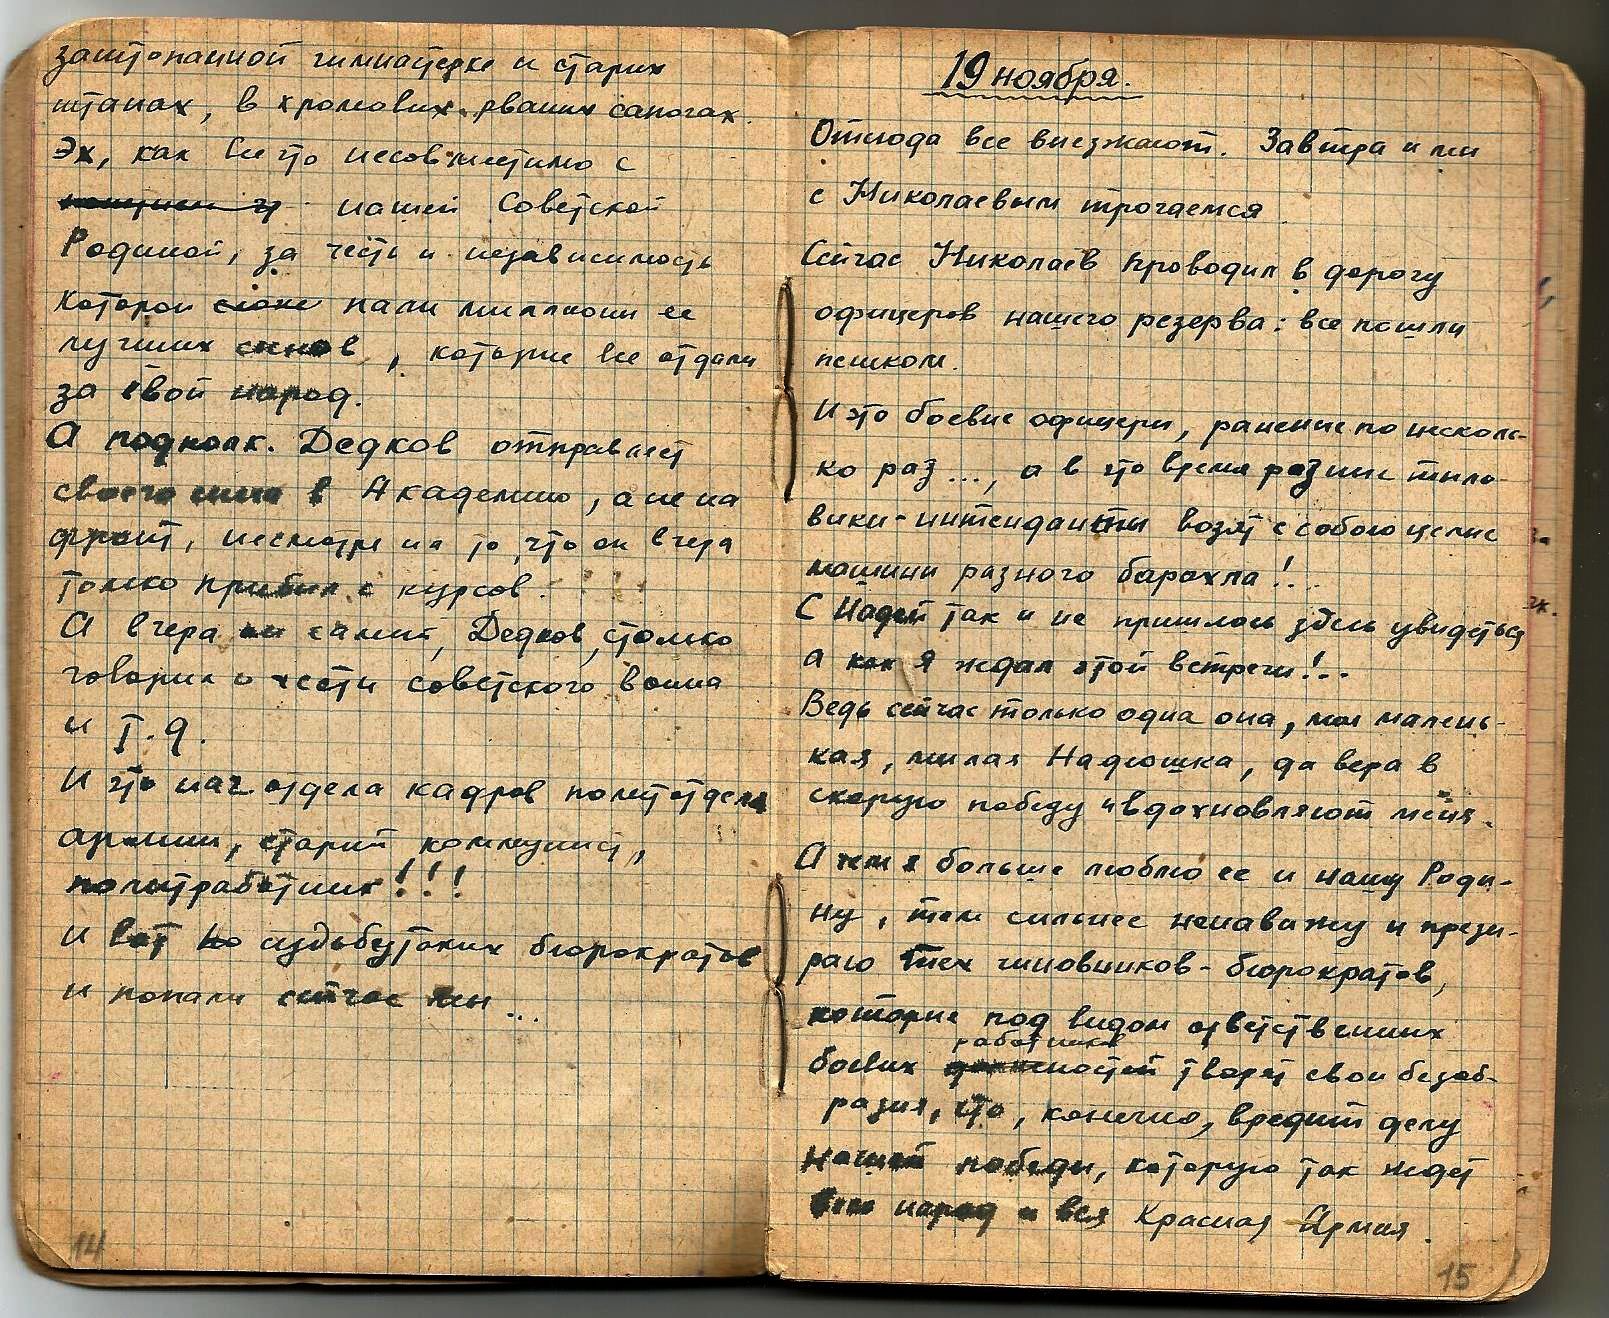 заштопанной гимнастерке и старих
штанах, в хромових рваних сапогах.
Эх, как все это несовместимо с
нашей Советской
Родиной, за честь и независимость
которой пали миллиони ее
лучших синов, которие все отдали
за свой народ.
А подполк. Дедков отправляет
своего сина в Академию, а не на
фронт, несмотря на то, что он вчера
только прибил с курсов.
А вчера он самий, Дедков, столько
говорил о чести советского воина
и т.д.
И это нач. отдела кадров политотдела
армии, старий коммунист,
политработник!!!
И вот на судьбу таких бюрократов
и попали сейчас ми...
14
19 ноября.
Отсюда все виезжают. Завтра и ми
с Николаевым трогаемся
Сейчас Николаев проводил в дорогу
офицеров нашего резерва: все пошли
пешком.
И это боевие офицери, ранение по несколь-
ко раз..., а в это время разние тило-
вики-интенданти возят с собою целие
машини разного барахла!..
С Надей так и не пришлось здесь увидеться
а как я ждал этой встречи!..
Ведь сейчас только одна она, моя малень-
кая, милая Надюшка, да вера в
скорую победу и вдохновляют меня.
А чем я больше люблю ее и нашу Роди-
ну, тем сильнее ненавижу и прези-
раю тех чиновников-бюрократов,
которие под видом ответственних
работников
боевих должностей творят свои безоб-
разия, что, конечно, вредит делу
нашей победи, которую так ждет
весь народ и вся Красная Армия.
15